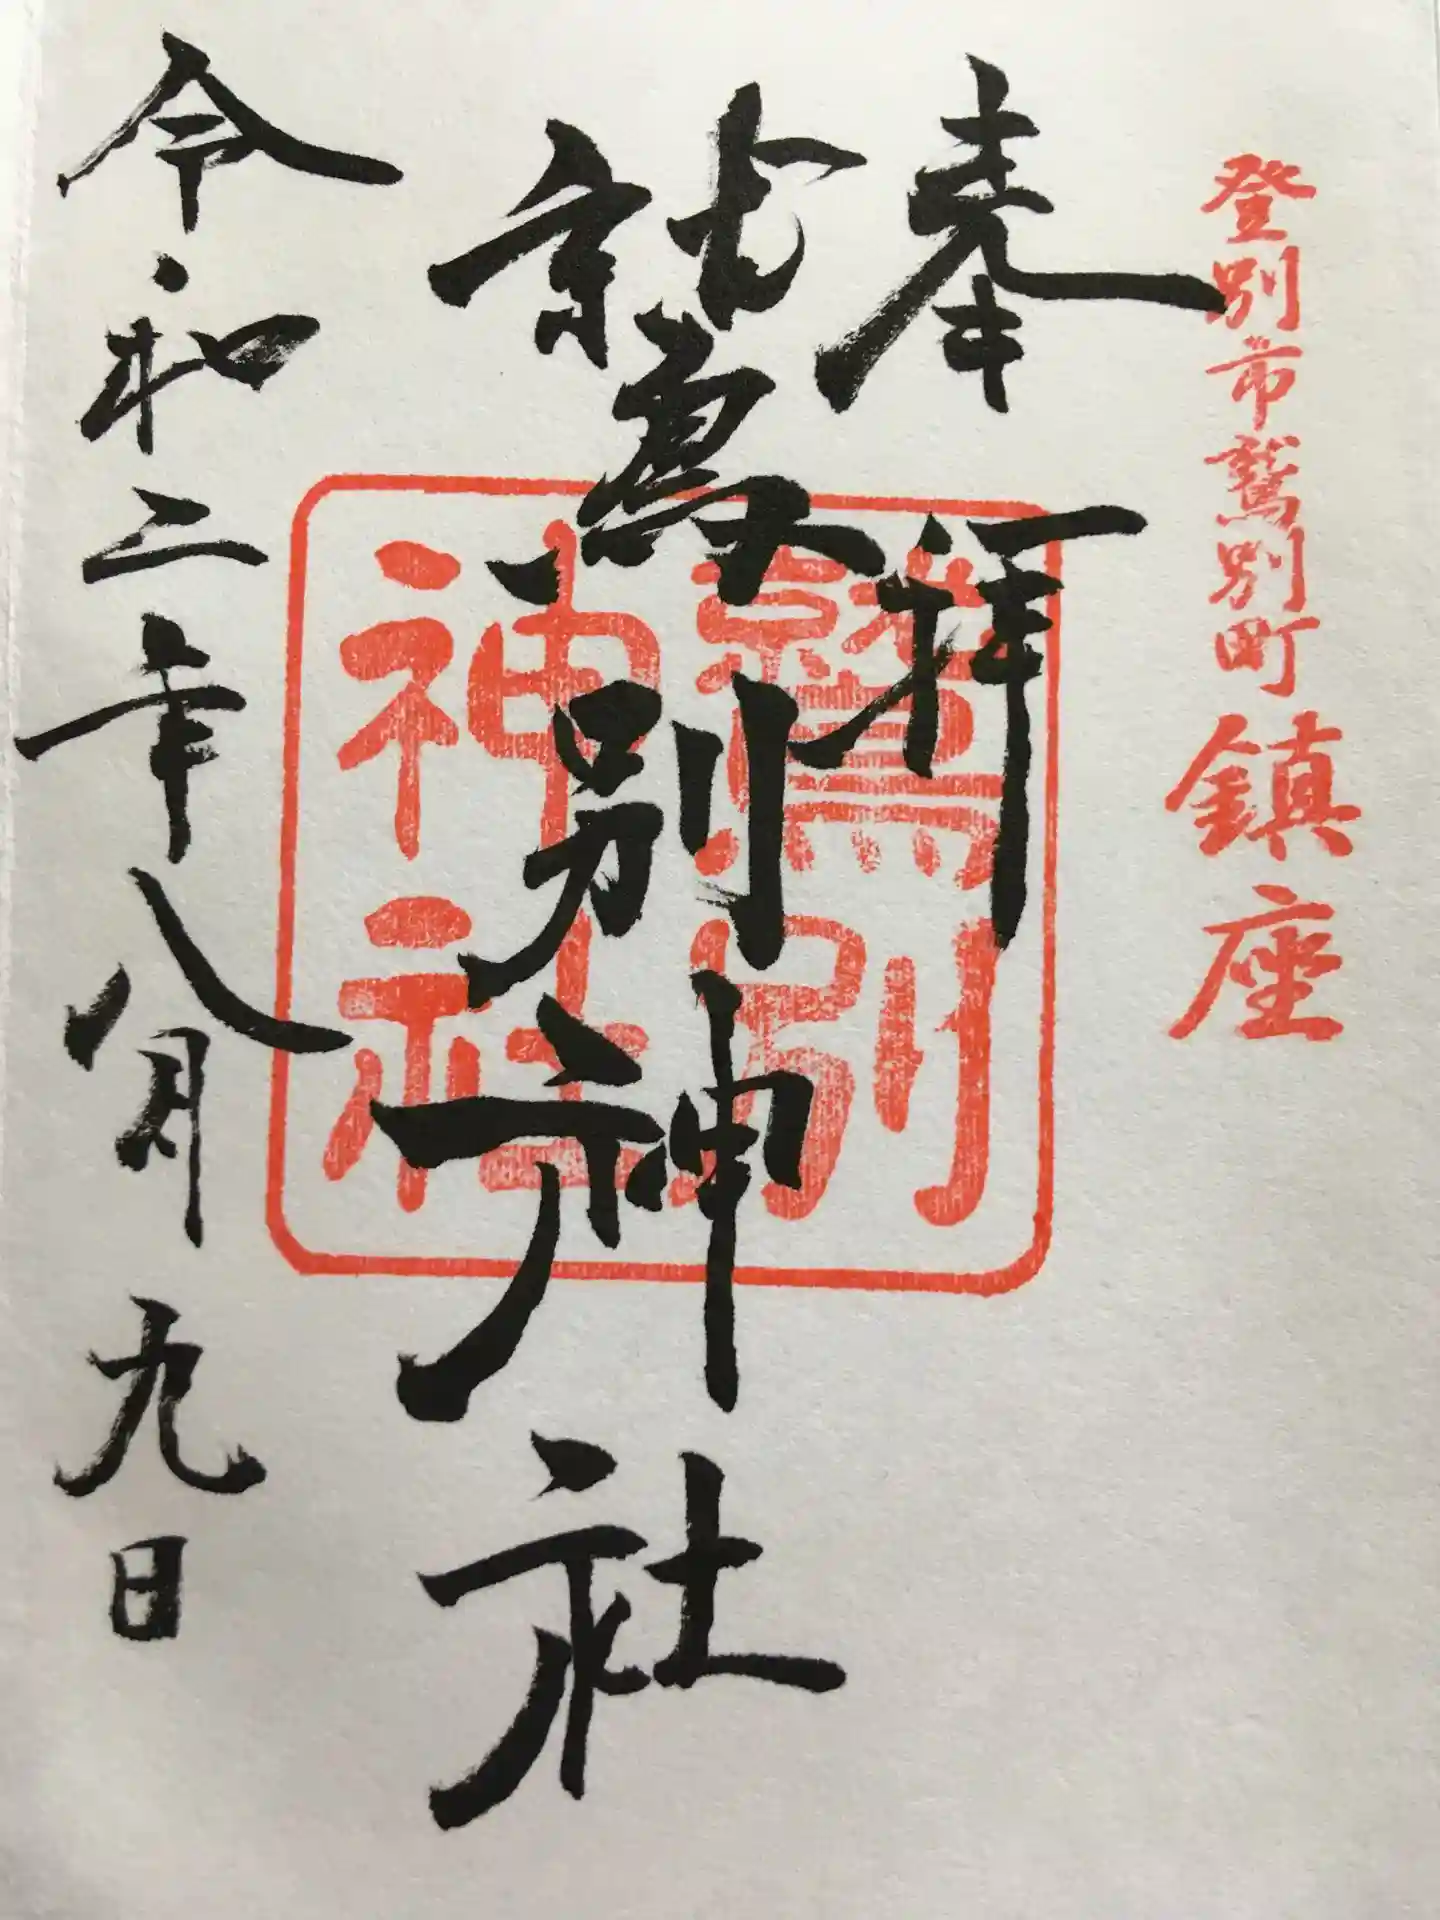 登別市鷲別町鎮座
奉拝
鷲別神社
鷲別
神社
令和二年八月九日